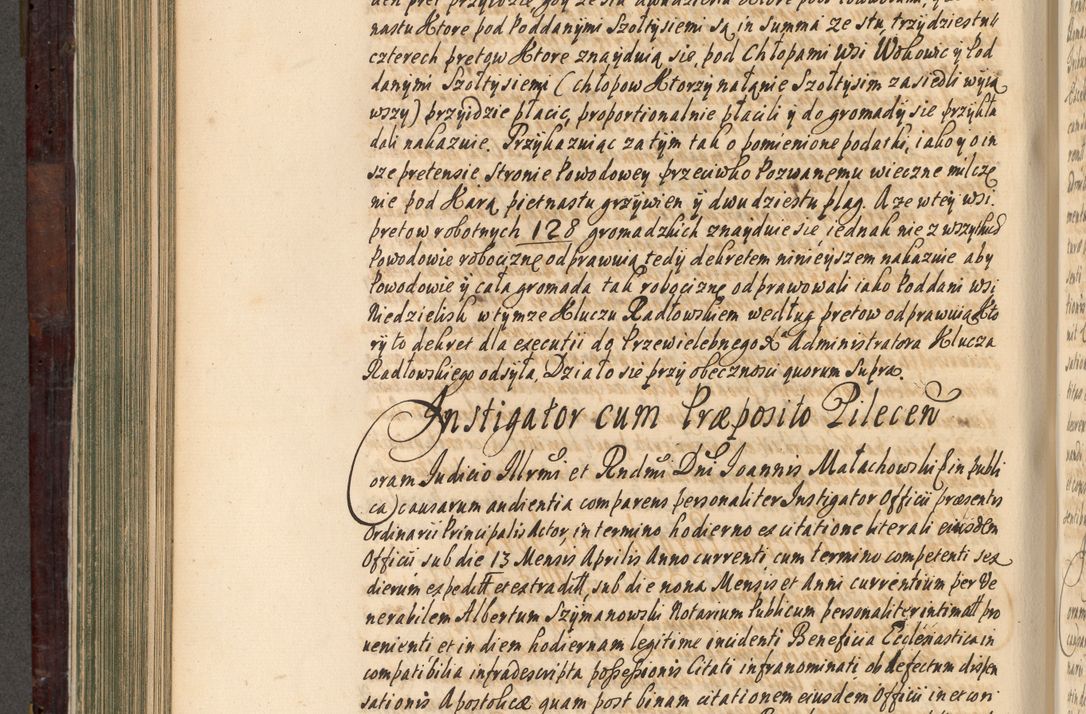 nastu Ktore pod Poddanymi Szołtysiemi są in summa ze stu, trzydziestu
czterech prętow Ktore znayduią się, pod Chłopami wsi Wokowic y Pod
danymi Szołtysiemi (Chłopow Ktorzy na łąnie Szołtysim zasiedli wyią
wszy) przyidzie płacic, proportionalnie płacili y do gromady się przykła
dali nakazuie. Przykazuiąc zatym tak o pomienione podatki, iako y o in
sze pretensie Stronie Powodowey przeciwko Pozwanemu wieczne milcze
nie pod Karą pietnastu grzywien y dwudziestu plag. A ze w tey wsi
prętow robotnych 128 gromadzkich znayduie się iednak nie z wszytkich
Powodowie robociznę odprawuią, tedy dekretem ninieyszem nakazuie aby
Powodowie y cała gromada tak robociznę odprawowali iako Poddani wsi
Niedzielisk w tymze Kluczu Radłowskiem według prętow odprawuią Kto
ry to dekret dla executii do Przewielebnego Xa Administratora Klucza
Radłowskiego odsyła, Działo się przy obecznosci quorum supra.
Instigator cum Præposito Pilecen
Coram Judicio Illrmi et Rndmi Dni Joannis Małachowski (in publi
ca) causarum audientia comparens personaliter Instigator Officii præsentis
Ordinarii Principalis Actor, in termino hodierno ex citatione literali eiusdem
Officii sub die 13 Mensis Aprilis Anno currenti, cum termino competenti sex
dierum expeditt et extraditt, sub die nona Mensis et Anni currentium per Ve
nerabilem Albertum Szymanowski Notarium Publicum personaliter intimatt pro
venienti et in diem hodiernam legitime incidenti Beneficia Ecclesiastica in
compatibilia infradescripta possessionis Citati infranominati, ob defectum dispen
sationis Apostolicæ quam post binam citationem eiusdem Officii